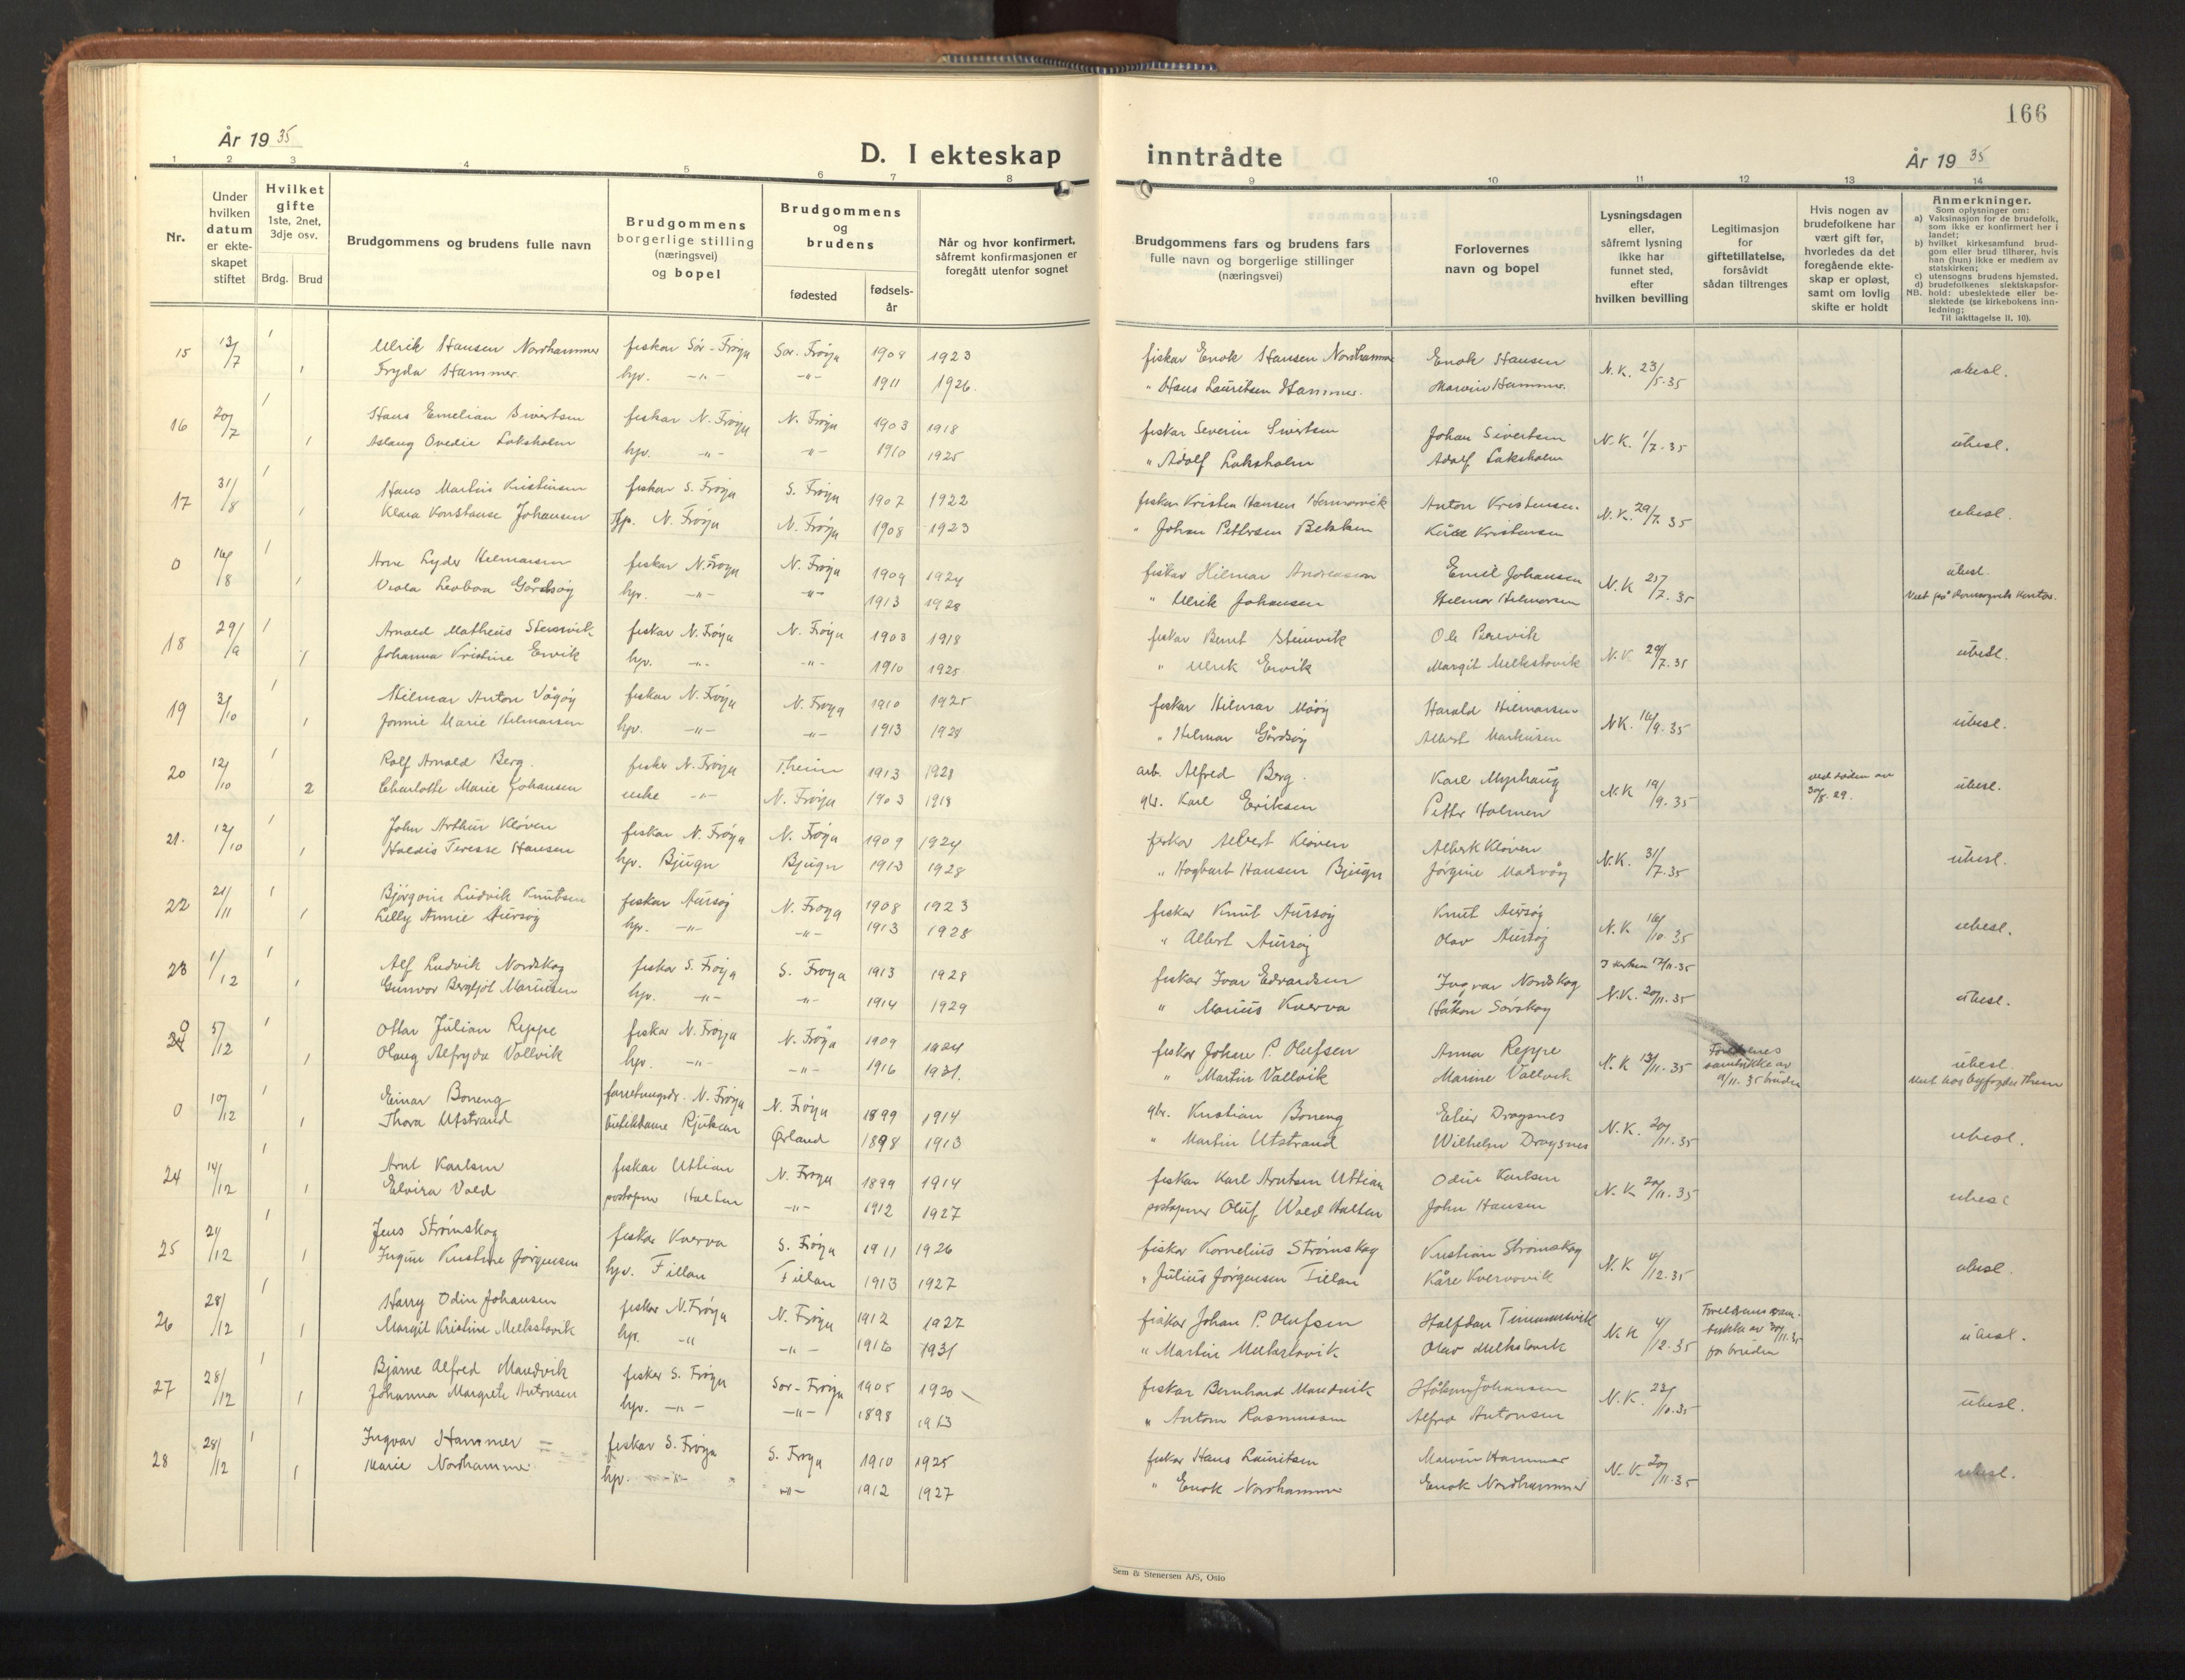 166
År 19 35
D. I ekteskap
inntrådte
År 19 35
1 2 3 4 5 6 7 8
9 10 11 12 13 14
Nr.
Under
hvilken
datum
er ekte-
skapet
stiftet
Hvilket
gifte
1ste, 2net,
3dje osv.
Brdg. Brud
Brudgommens og brudens fulle navn
Brudgommens
borgerlige stilling
(næringsvei)
og bopel
Brudgommens
og
brudens
fødested
fødsels-
år
Når og hvor konfirmert,
såfremt konfirmasjonen er
foregått utenfor sognet
Brudgommens fars og brudens fars
fulle navn og borgerlige stillinger
(næringsvei)
Forlovernes
navn og bopel
Lysningsdagen
eller,
såfremt lysning
ikke har
funnet sted,
efter
hvilken bevilling
Legitimasjon
for
giftetillatelse,
forsåvidt
sådan tiltrenges
Hvis nogen av
brudefolkene har
vært gift før,
hvorledes da det
foregående ekte-
skap er opløst,
samt om lovlig
skifte er holdt
Anmerkninger.
Som oplysninger om:
a) Vaksinasjon for de brudefolk,
som ikke er konfirmert her i
landet;
b) hvilket kirkesamfund brud-
gom eller brud tilhører, hvis
han (hun) ikke er medlem av
statskirken;
c) utensogns brudens hjemsted.
d) brudefolkenes slektskapsfor-
NB. hold: ubeslektede eller be-
slektede (se kirkebokens inn-
ledning;
Til iakttagelse II. 10).
15 13/7 1 Ulrik Hansen Nordhammer fisker Sør-Frøya Sør-Frøya 1908 1923 fisker Enok Hansen Nordhammer Enok Hansen N.K. 23/5.35 ubesl.
1 Fryda Hammer. hp. -"- -"- 1911 1926. " Hans Lauritsen Hammer. Marvin Hammer.
16 20/7 1 Hans Emelian Sivertsen fisker N. Frøya N. Frøya 1903 1918 fisker Severin Sivertsen Johan Sivertsen N.K. 1/7.35 ubesl.
1 Aslaug Ovedie Laksholm hp. -"- -"- 1910 1925 " Adolf Laksholm Adolf Laksholm
17 31/8 1 Hans Martin Kristensen fisker S. Frøya S. Frøya 1907 1922 fisker Kristen Hansen Anton Kristensen N.K. 29/7.35 ubesl.
1 Klara Konstanse Johansen Hp. N. Frøya N. Frøya 1908 1923 " Johan Pettersen Bekken Kristensen
0 16/8 1 Arne Lyder Hilmarsen fisker N. Frøya N. Frøya 1909 1924 fisker Hilmar Andreassen Emil Johansen N.K 25/7.35 ubesl.
1 Viola Gårdsøy hp. -"- -"- 1913 1928 " Ulrik Johansen Hilmar Hilmarsen
18 29/9 1 Arnold Matheus Stensvik fisker N. Frøya N. Frøya 1903 1918 fisker Bernt Steinvik Ole N.K 29/7.35 ubesl.
1 Johanna Kristine Ervik hp. -"- -"- 1910 1925 " Ulrik Ervik Margit Melkstovik
19 3/10 1 Hilmar Anton Vågøy fisker N. Frøya N. Frøya 1910 1925 fisker Hilmar Harald Hilmarsen NK. 16/9.35 ubesl.
1 Jonnie Marie Hilmarsen hp. -"- -"- 1913 1928 " Hilmar Gårdsøy Albert Markusen
20 12/10 1 Rolf Arnold Berg. fisker N. Frøya Theim 1913 1928 arb. Alfred Berg. Karl Myrhaug N.K 19/9.35 ved døden av ubesl.
2 Charlotte Marie Johansen enke -"- N. Frøya 1903 1918 gbr. Karl Eriksen Petter Holmen 30/8.29.
21. 12/10 1 John Arthur Kløven fisker N. Frøya N. Frøya 1909 1924 fisker Albert Kløven Albert Kløven N.K. 31/7.35 ubesl.
1 Haldis Teresse Hansen hp. Bjugn Bjugn 1913 1928 " Hagbart Hansen Bjugn Jørgine Madsvåg
22 21/11 1 Bjørgvin Ludvik Knutsen fisker Aursøy N. Frøya 1908 1923 fisker Knut Aursøy Knut Aursøy N.K 16/10.35 ubesl.
1 Lilly Annie Aursøy hp. -"- -"- 1913 1928 " Albert Aursøy Olav Aursøy
23 1/12 1 Alf Ludvik Nordskog fisker S. Frøya S. Frøya 1913 1928 fisker Ivar Edvardsen Ingvar Nordskog I kirken 17/11.35
1 Gunvor Bergljot Mariusen hp. -"- -"- 1914 1929 " Marius Kverva Håkon Sørskog N.K. 20/11.35 ubesl.
0 24 5/12 1 Ottar Julian Reppe fisker N. Frøya N. Frøya 1909 1924 fisker Johan P. Olufsen Anna Reppe N.K 13/11.35 Foreldrenes samtykke av 9/11.35 bruden ubesl.
1 Olaug Alfryda Vallvik hp. -"- -"- 1916 1931. " Martin Vallvik Marine Vallvik Viet hos byfogden Theim
0 10/12 1 Einar Boneng N. Frøya N. Frøya 1899 1914 gbr. Kristian Boneng Dragsnes N.K. 20/11.35 ubesl.
1 Thora Utstrand butikkdame Rjukan Ørland 1898 1913 " Martin Utstrand Wilhelm Dragsnes
24 14/12 1 Arnt Karlsen fisker Uttian N. Frøya 1899 1914 fisker Karl Arntsen Uttian Odin Karlsen N.K 20/11.35 ubesl
1 Elvira Vold poståpner Halten -"- 1912 1927 poståpner Oluf Wold Halten John Hansen
25 24/12 1 Jens Strømskag fisker Kverva S. Frøya 1911 1926 fisker Kornelius Strømskag Kristian Strømskag N.K 4/12.35 ubesl.
1 Ingun Kristine Jørgensen hp. Fillan Fillan 1913 1927 " Julius Jørgensen Fillan Kåre Kvervavik
26 28/12 1 Harry Odin Johansen fisker N. Frøya N. Frøya 1912 1927 fisker Johan P. Olufsen Halfdan N.K 4/12.35 Foreldrenes sam- tykke av 30/11.35 for bruden ubesl.
1 Margit Kristine Melkstovik hp. -"- -"- 1916 1931 " Martin Melkstovik Olav Melkstovik
27 28/12 1 Bjarne Alfred Mandvik fisker S. Frøya Sør-Frøya 1905 1920 fisker Bernhard Mandvik Håkon Johansen N.K. 23/10.35 ubesl.
1 Johanna Margrete Antonsen hp. -"- -"- 1898 1913 " Anton Rasmussen Alfred Antonsen
28 28/12 1 Ingvar Hammer fisker S. Frøya S. Frøya 1910 1925 fisker Hans Lauritsen Marvin Hammer N.K 20/11.35 ubesl.
1 Marie Nordhammer hp. -"- -"- 1912 1927 " Enok Nordhammer Enok Nordhammer
Sem & Stenersen A/S, Oslo